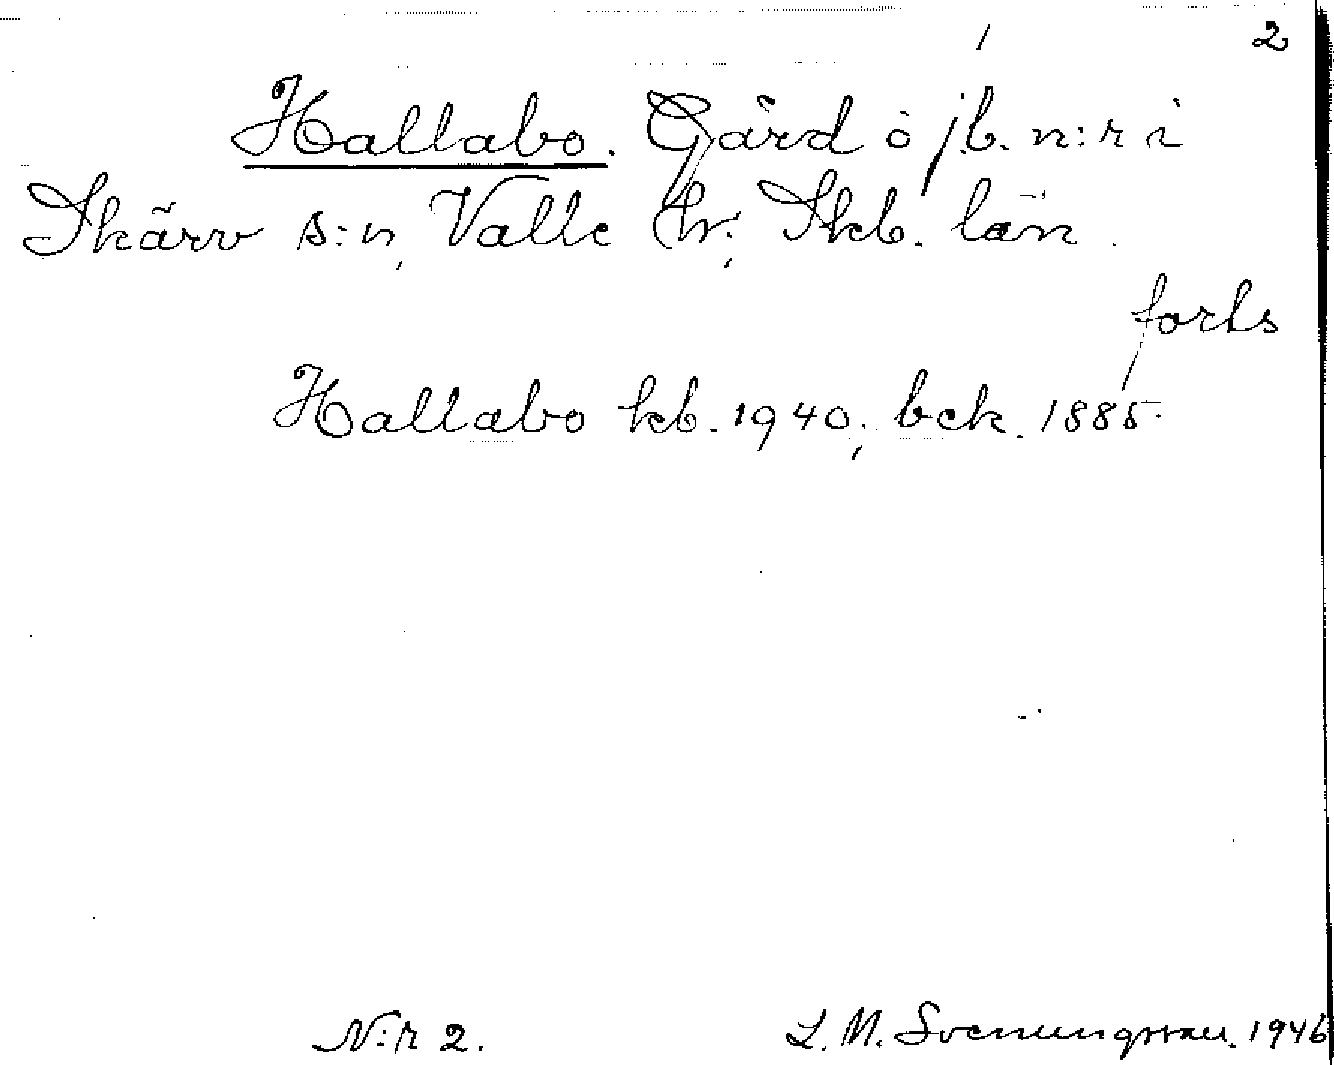 2
Hallabo. Gård å jb. n:r i
Skärv s:n, Valle hr., Skb. län.
forts
Hallabo kb. 1940; bek. 1885.
N:r 2. L. M. Svenungsson. 1946